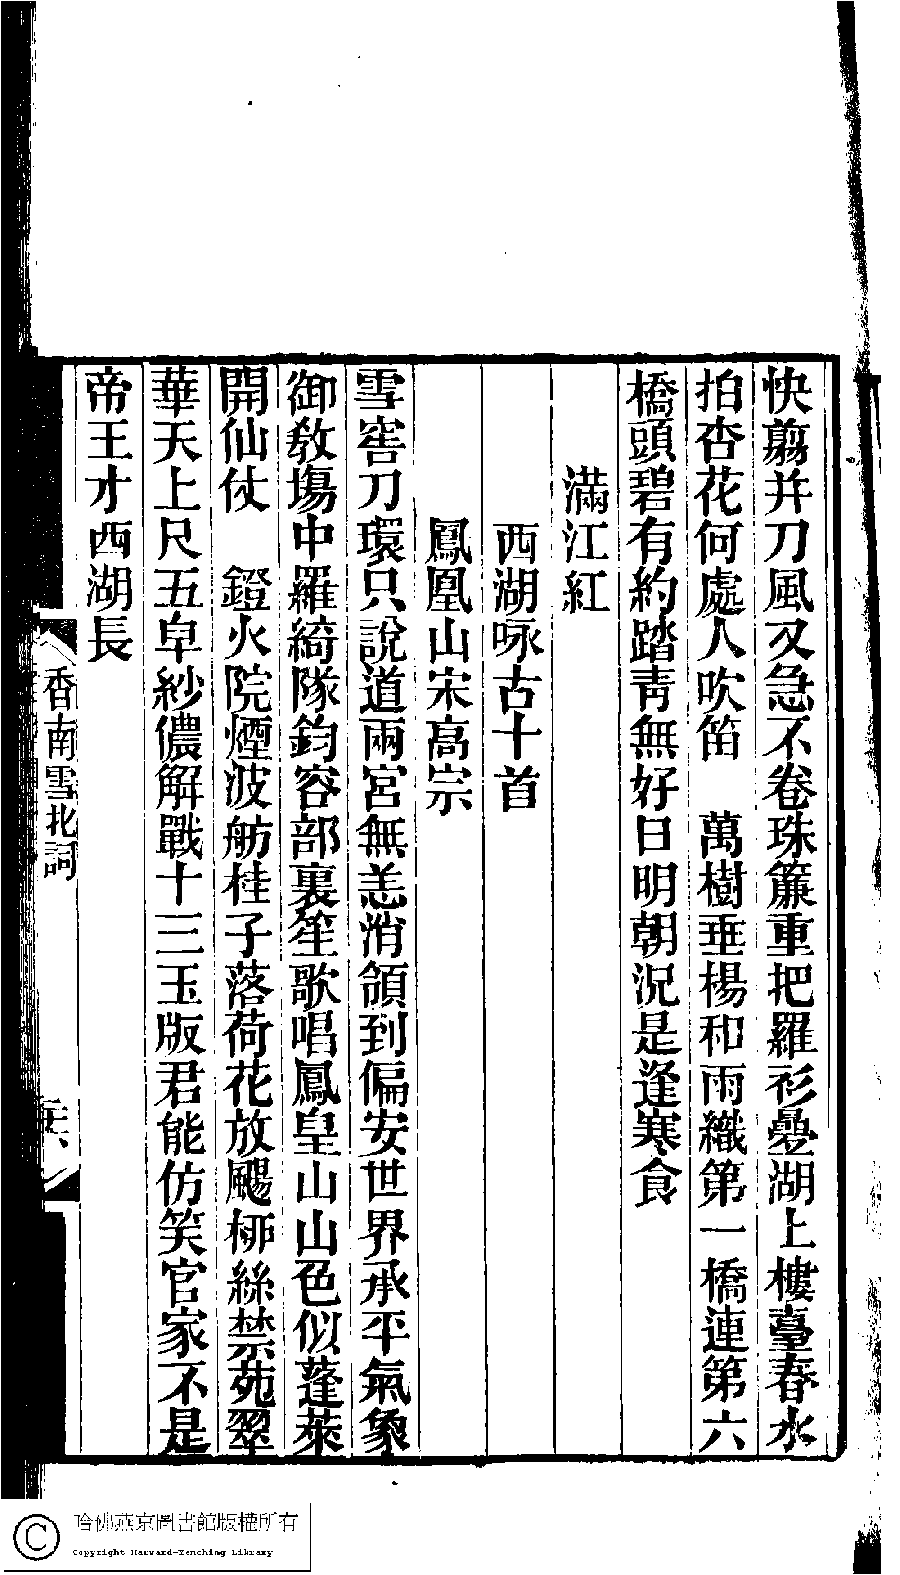 快剪并刀風又急不卷珠簾重把羅衫疊湖上樓臺春水
拍杏花何處人吹笛　萬樹垂楊和雨織第一橋連第六
橋頭碧有約踏青無好日明朝況是逢寒食
滿江紅
西湖咏古十首
鳳凰山宋高宗
雪窖刀環只說道兩宮無恙消領到偏安世界承平氣象
御敎塲中羅綺隊鈞容部裏笙歌唱鳳皇山山色似蓬萊
開仙仗　鐙火院煙波舫桂子落荷花放颺柳絲禁苑翠
華天上尺五皁紗儂解戰十三玉版君能仿笑官家不是
帝王才西湖長
香南雪北詞
哈佛燕京圖書館版權所有
Copyright Harvard-Yenching Library